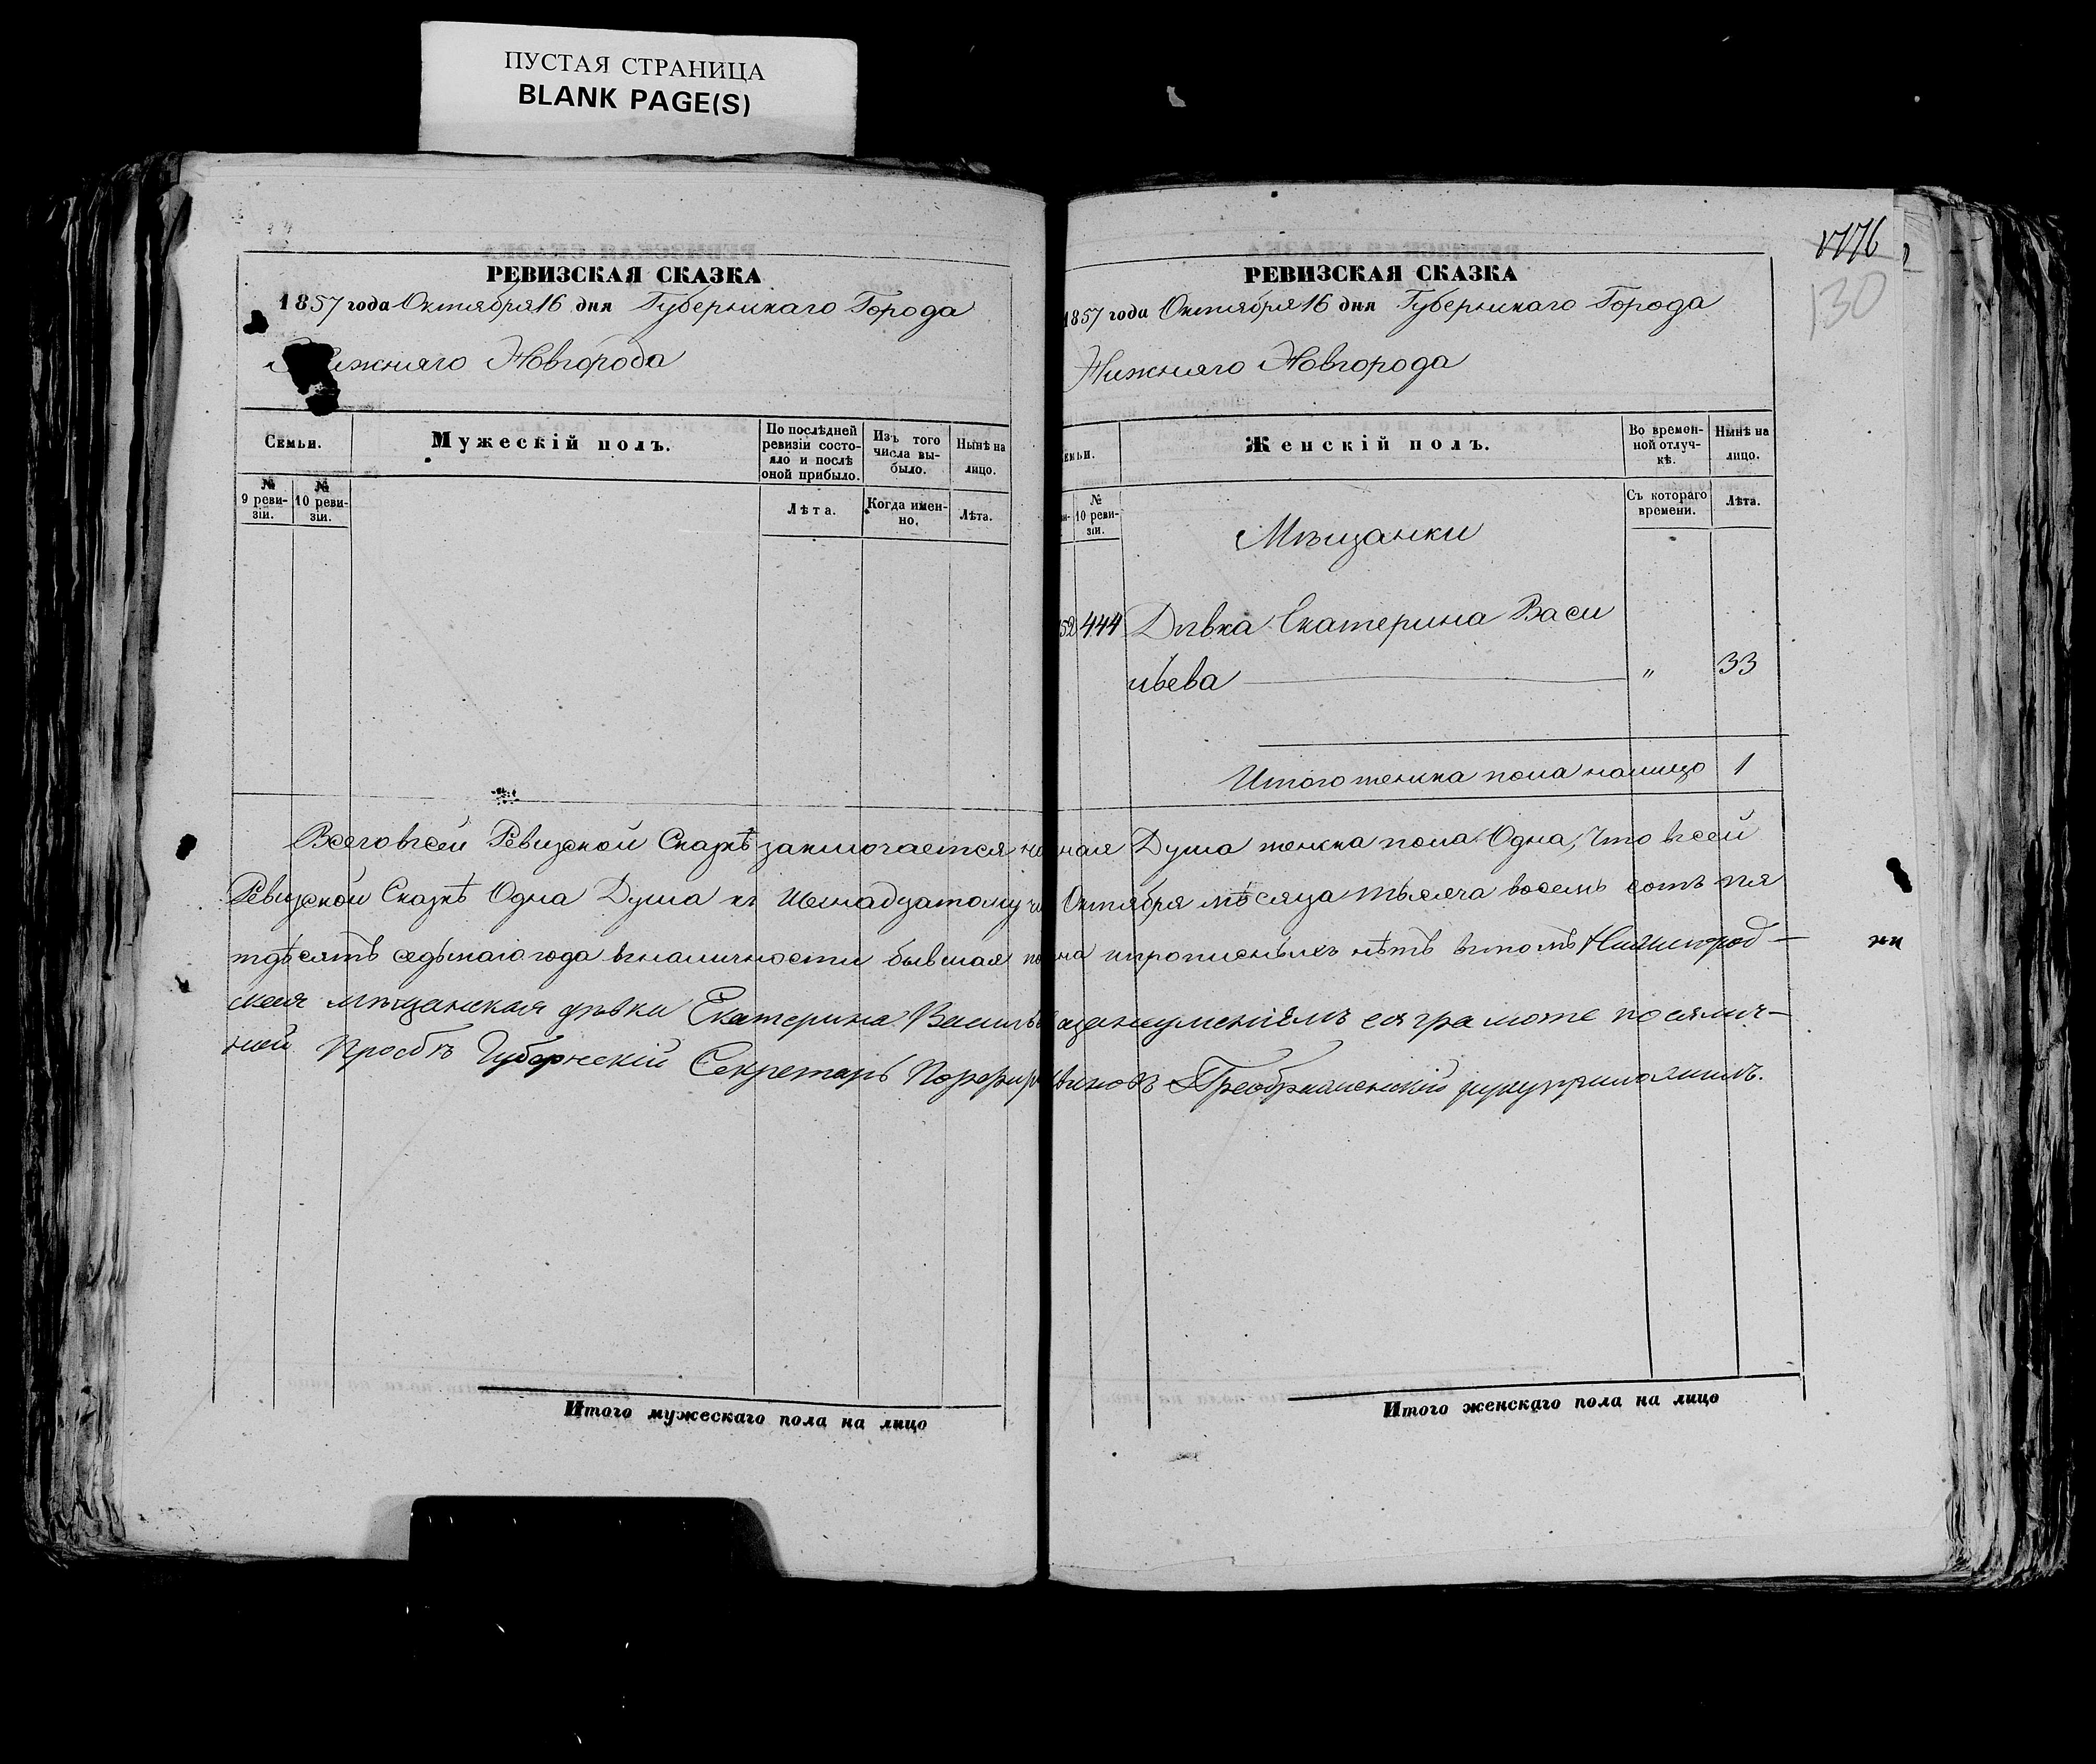 ПУСТАЯ СТРАНИЦА
BLANK PAGE(S)
РЕВИЗСКАЯ СКАЗКА
1857 года Октября 16 дня Губернскаго Города
Нижняго Новгорода
Семьи.
Мужескій полъ.
По послѣдней ревизіи состояло и послѣ оной прибыло.
Изъ того числа выбыло.
Нынѣ на лицо.
№ 9 ревизіи.
№ 10 ревизіи.
Лѣта.
Когда именно.
Лѣта.
Итого мужескаго пола на лицо
176
130
РЕВИЗСКАЯ СКАЗКА
1857 года Октября 16 дня Губернскаго Города
Нижняго Новгорода
емьи.
Женскій полъ.
Во временной отлучкѣ.
Нынѣ на лицо.
№ 10 ревизіи.
Съ котораго времени.
Лѣта.
Мѣщанки
52 444 Дѣвка Екатерина Васи
льева " 33
Итого женска пола налицо 1
Всего всей Ревизской Сказкѣ заключается Душа женска пола Одна, Что всей
Ревизской Сказкѣ Одна Душа къ Октября мѣсяца тысяча восемь сотъ пя
тдѣсятъ седьмаго года вналичности бывшая ипрописныхъ нѣтъ втомъ Нижегород-
ская мѣщанская дѣвка Екатерина Василье грамоте поеялич-
ной Просбѣ Губернскій Секретарь Преображенскій руку приложилъ.
Итого женскаго пола на лицо